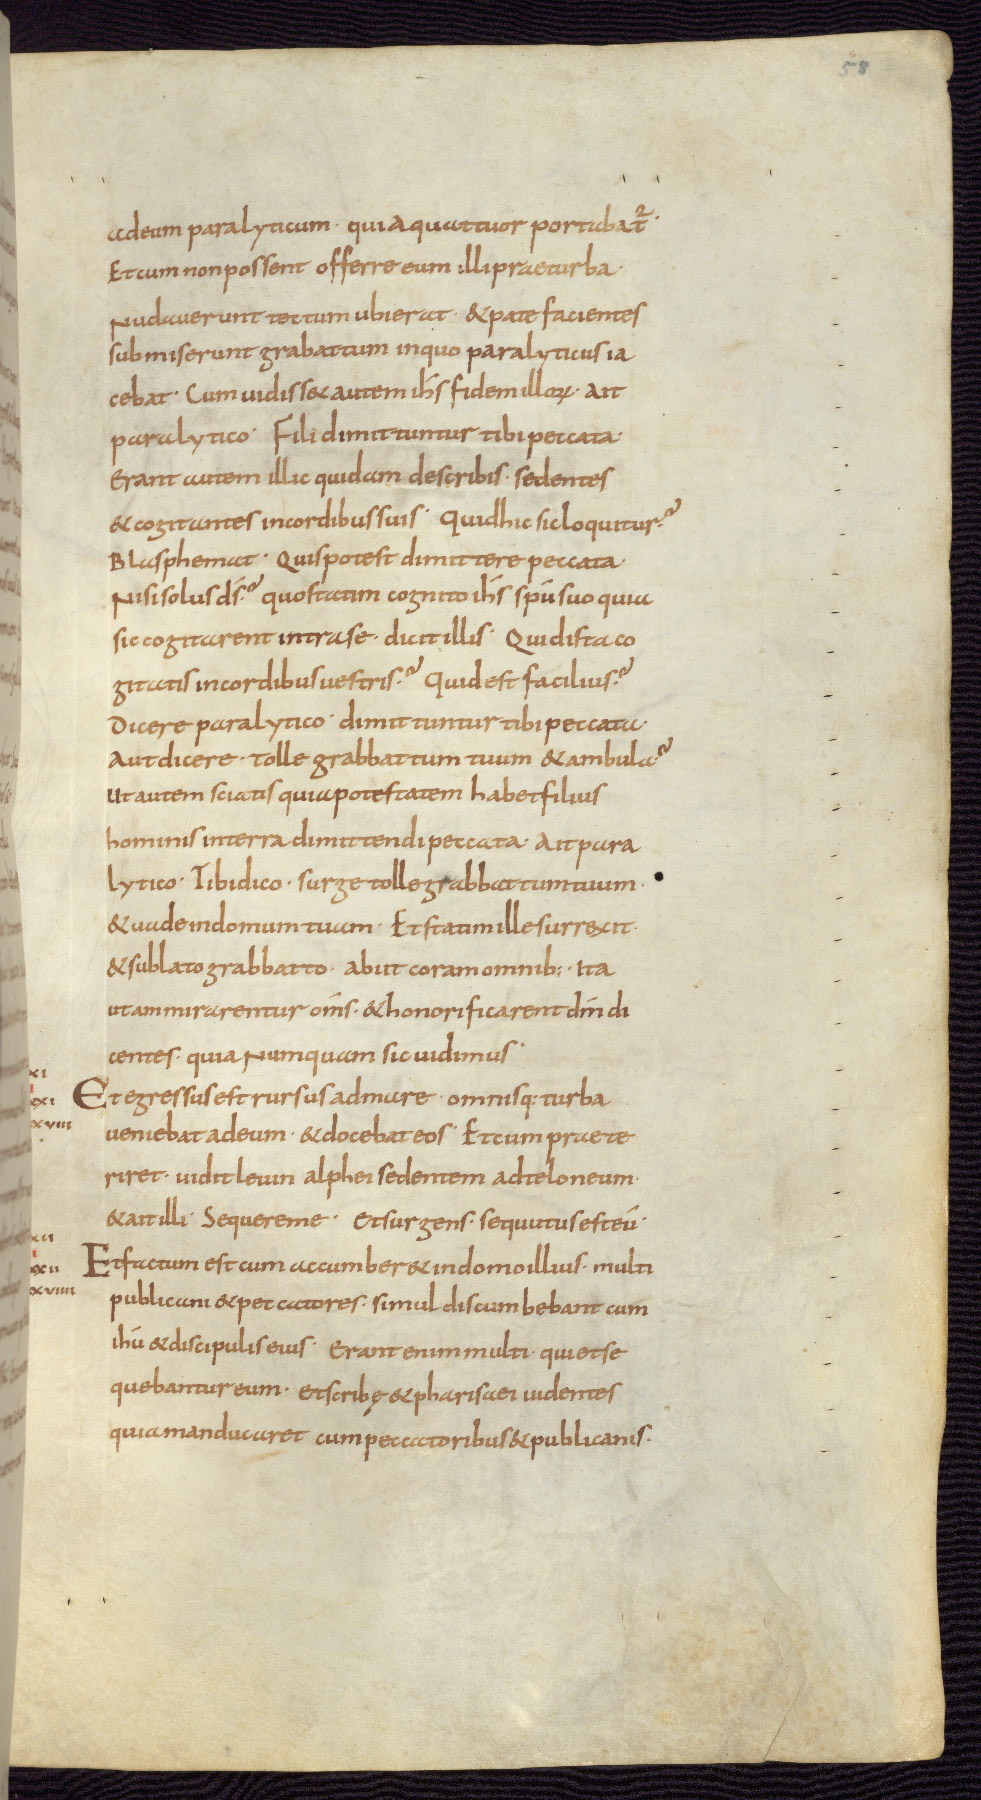 58
adeum paralyticum · qui a quattuor portabat᷑ ·
Et cum non possent offerre eum illi prae turba ·
Nudaverunt tectum ubi erat · & patefacientes
submiserunt grabattum in quo paralyticus ia
cebat · Cum uidiss& autem ih̅s fidem illoꝝ · ait
paralytico · Fili dimittuntur tibi peccata ·
Erant autem illic quidam de scribis · sedentes
& cogitantes in cordibus suis · Quid hic sic loquitur?
Blasphemat · Quis potest dimittere peccata ·
Nisi solus ds̅? quo statim cognito ih̅s spu̅ suo quia
sic cogitarent intra se · dicit illis · Quid ista co
gitatis in cordibus uestris? Quid est facilius?
Dicere paralytico · dimittuntur tibi peccata ·
Aut dicere · tolle grabbattum tuum & ambula?
Ut autem sciatis quia potestatem habet filius
hominis in terra dimittendi peccata · Ait para
lytico · Tibi dico · surge tolle grabbattum tuum ·
& uade in domum tuam · Et statim ille surrexit ·
& sublato grabbatto · abiit coram omnib; · Ita
ut ammirarentur om̅s · & honorificarent dm̅ di
centes · quia Numquam sic uidimus ·
xi
xxi
xviii
Et egressus est rursus ad mare · omnisq; turba
ueniebat ad eum · & docebat eos · Et cum praete
riret · uidit leuin alphei sedentem ad teloneum ·
& ait illi · Sequere me · Et surgens · sequutus est eu̅ ·
xii
xxii
xviiii
Et factum est cum accumber& in domo illius · multi
publicani & peccatores · simul discumbebant cum
ihu̅ & discipulis eius · Erant enim multi · qui et se
quebantur eum · Et scribę & pharisaei uidentes
quia manducaret cum peccatoribus & publicanis ·